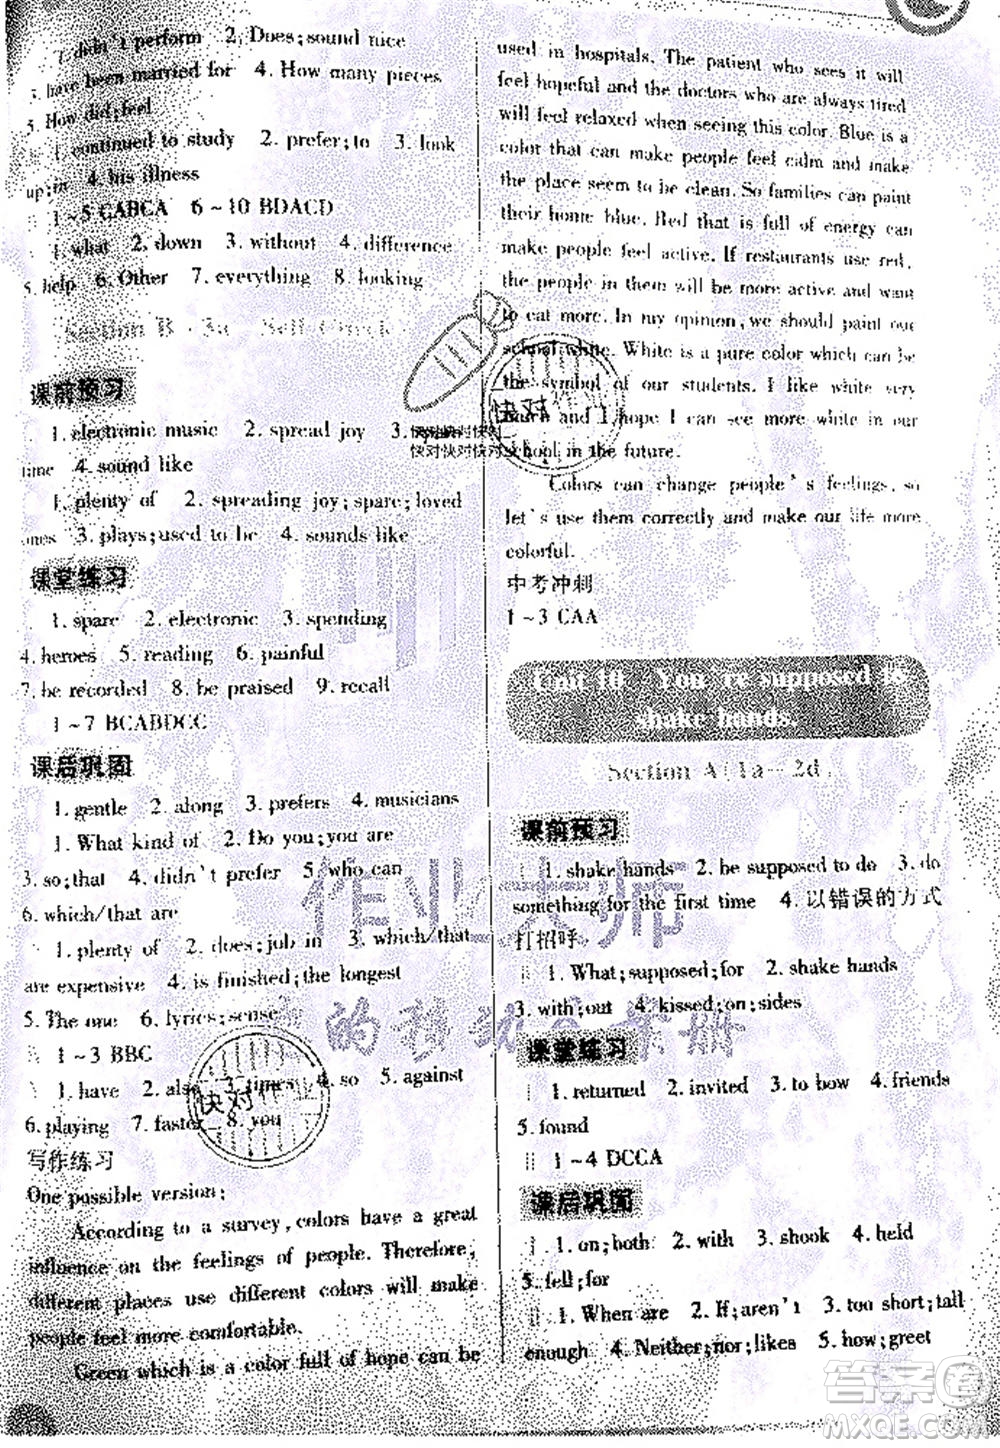 1. didn't perform 2. Does;sound nice
3. have been married for 4. How many pieces
5. How did;feel
1. continued to study 2. prefer;to 3. look
up;in 4. his illness
1~5 CABCA 6~10 BDACD
1. what 2. down 3. without 4. difference
5. help 6. Other 7. everything 8. looking
Section B 3a Self Check
课前预习
1. electronic music 2. spread joy 3.
time 4. sound like
1. plenty of 2. spreading joy;spare;loved
ones 3. plays;used to be 4. sounds like
课堂练习
1. spare 2. electronic 3. spending
4. heroes 5. reading 6. painful
7. be recorded 8. be praised 9. recall
1~7 BCABDCC
课后巩固
1. gentle 2. along 3. prefers 4. musicians
1. What kind of 2. Do you;you are
3. so;that 4. didn't regret 5. who can
6. which/that are
1. plenty of 2. does;job in 3. which/that
are expensive 4. is finished;the longest
5. The one 6. lyrics;sense
1~3 BBC
1. have 2. also 3. times 4. so 5. against
6. playing 7. faster 8. you
写作练习
One possible version:
According to a survey, colors have a great
influence on the feelings of people. Therefore,
different places use different colors will make
people feel more comfortable.
Green which is a color full of hope can be
used in hospitals. The patient who sees it will
feel hopeful and the doctors who are always tired
will feel relaxed when seeing this color. Blue is a
color that can make people feel calm and make
the place seem to be clean. So families can paint
their home blue. Red that is full of energy can
make people feel active. If restaurants use red,
the people in them will be more active and want
to eat more. In my opinion, we should paint our
school white. White is a pure color which can be
the symbol of our students. I like white very
much and I hope I can see more white in our
school in the future.
Colors can change people's feelings, so
let's use them correctly and make our life more
colorful.
中考冲刺
1~3 CAA
Unit 10 You're supposed to
shake hands.
Section A(1a~2d)
课前预习
1. shake hands 2. be supposed to do 3. do
something for the first time 4. 以错误的方式
打招呼
1. What;supposed;for 2. shake hands
3. with;out 4. kissed;on;sides
课堂练习
1. returned 2. invited 3. to bow 4. friends
5. found
1~4 DCCA
课后巩固
1. on;both 2. with 3. shook 4. held
5. fell;for
1. When are 2. If;aren't 3. too short;tall
enough 4. Neither;nor;likes 5. how;greet
快对
快对快对快对
快对快对快对
快对
作业大师
答案圈
MXQE.COM